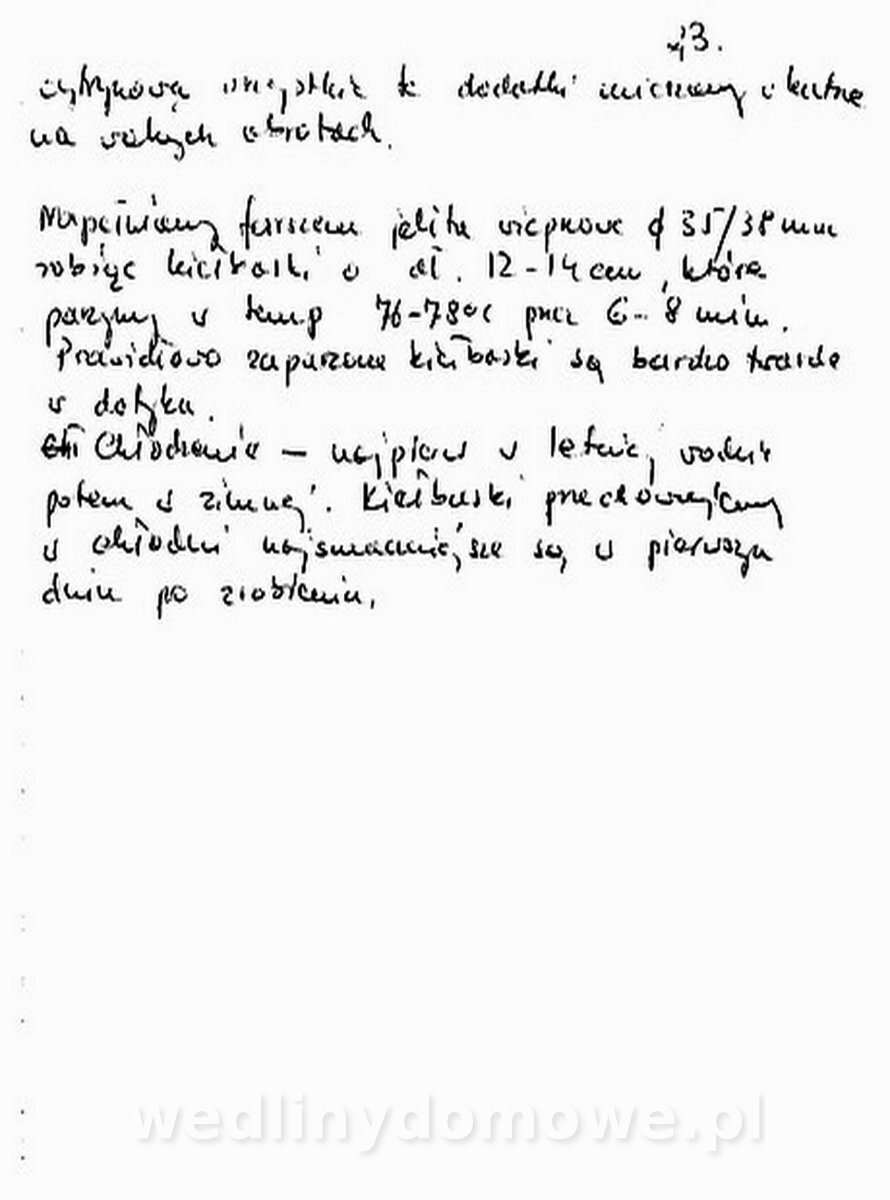 3.
cytrynową wszystkie te dodatki mieszamy w kutrze
na wolnych obrotach.
Napełniamy farszem jelita wieprzowe φ 35/38 mm
robiąc kiełbaski o dł. 12-14 cm, które
parzymy w temp 76-78°C przez 6-8 min.
Prawidłowo zaparzone kiełbaski są bardzo twarde
w dotyku.
Chłodzenie – najpierw w letniej wodzie
potem w zimnej. Kiełbaski przechowujemy
w chłodni najsmaczniejsze są w pierwszym
dniu po zrobieniu.
wedlinydomowe.pl